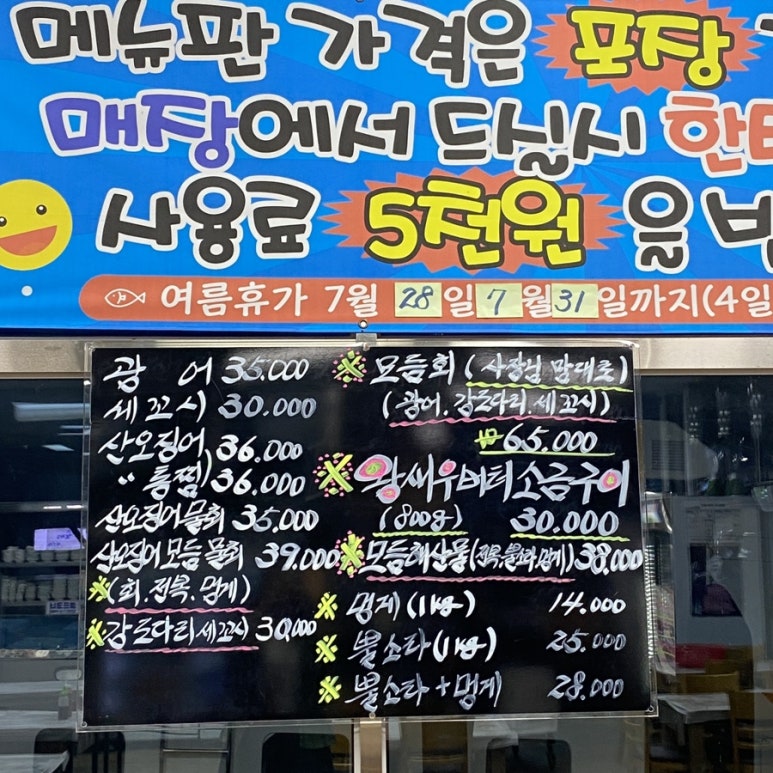 메뉴판 가격은 포장
매장에서 드실시 한
사용료 5천원 을
여름휴가 7월 28일 7월 31일까지(4일
광 어 35.000
세꼬시 30.000
산오징어 36.000
〃 통찜) 36.000
산오징어물회 35.000
산오징어모듬물회 39.000
※(회.전복.멍게)
※강도다리세꼬시 30,000
※ 모듬회 (사장님 맘대로)
(광어.강도다리.세꼬시)
₩65.000
※왕새우버터소금구이
(800g) 30.000
※모듬해산물(전복.뿔소라.멍게) 38,000
※ 멍게 (1kg) 14.000
※ 뿔소라 (1kg) 25.000
※ 뿔소라+멍게 28.000